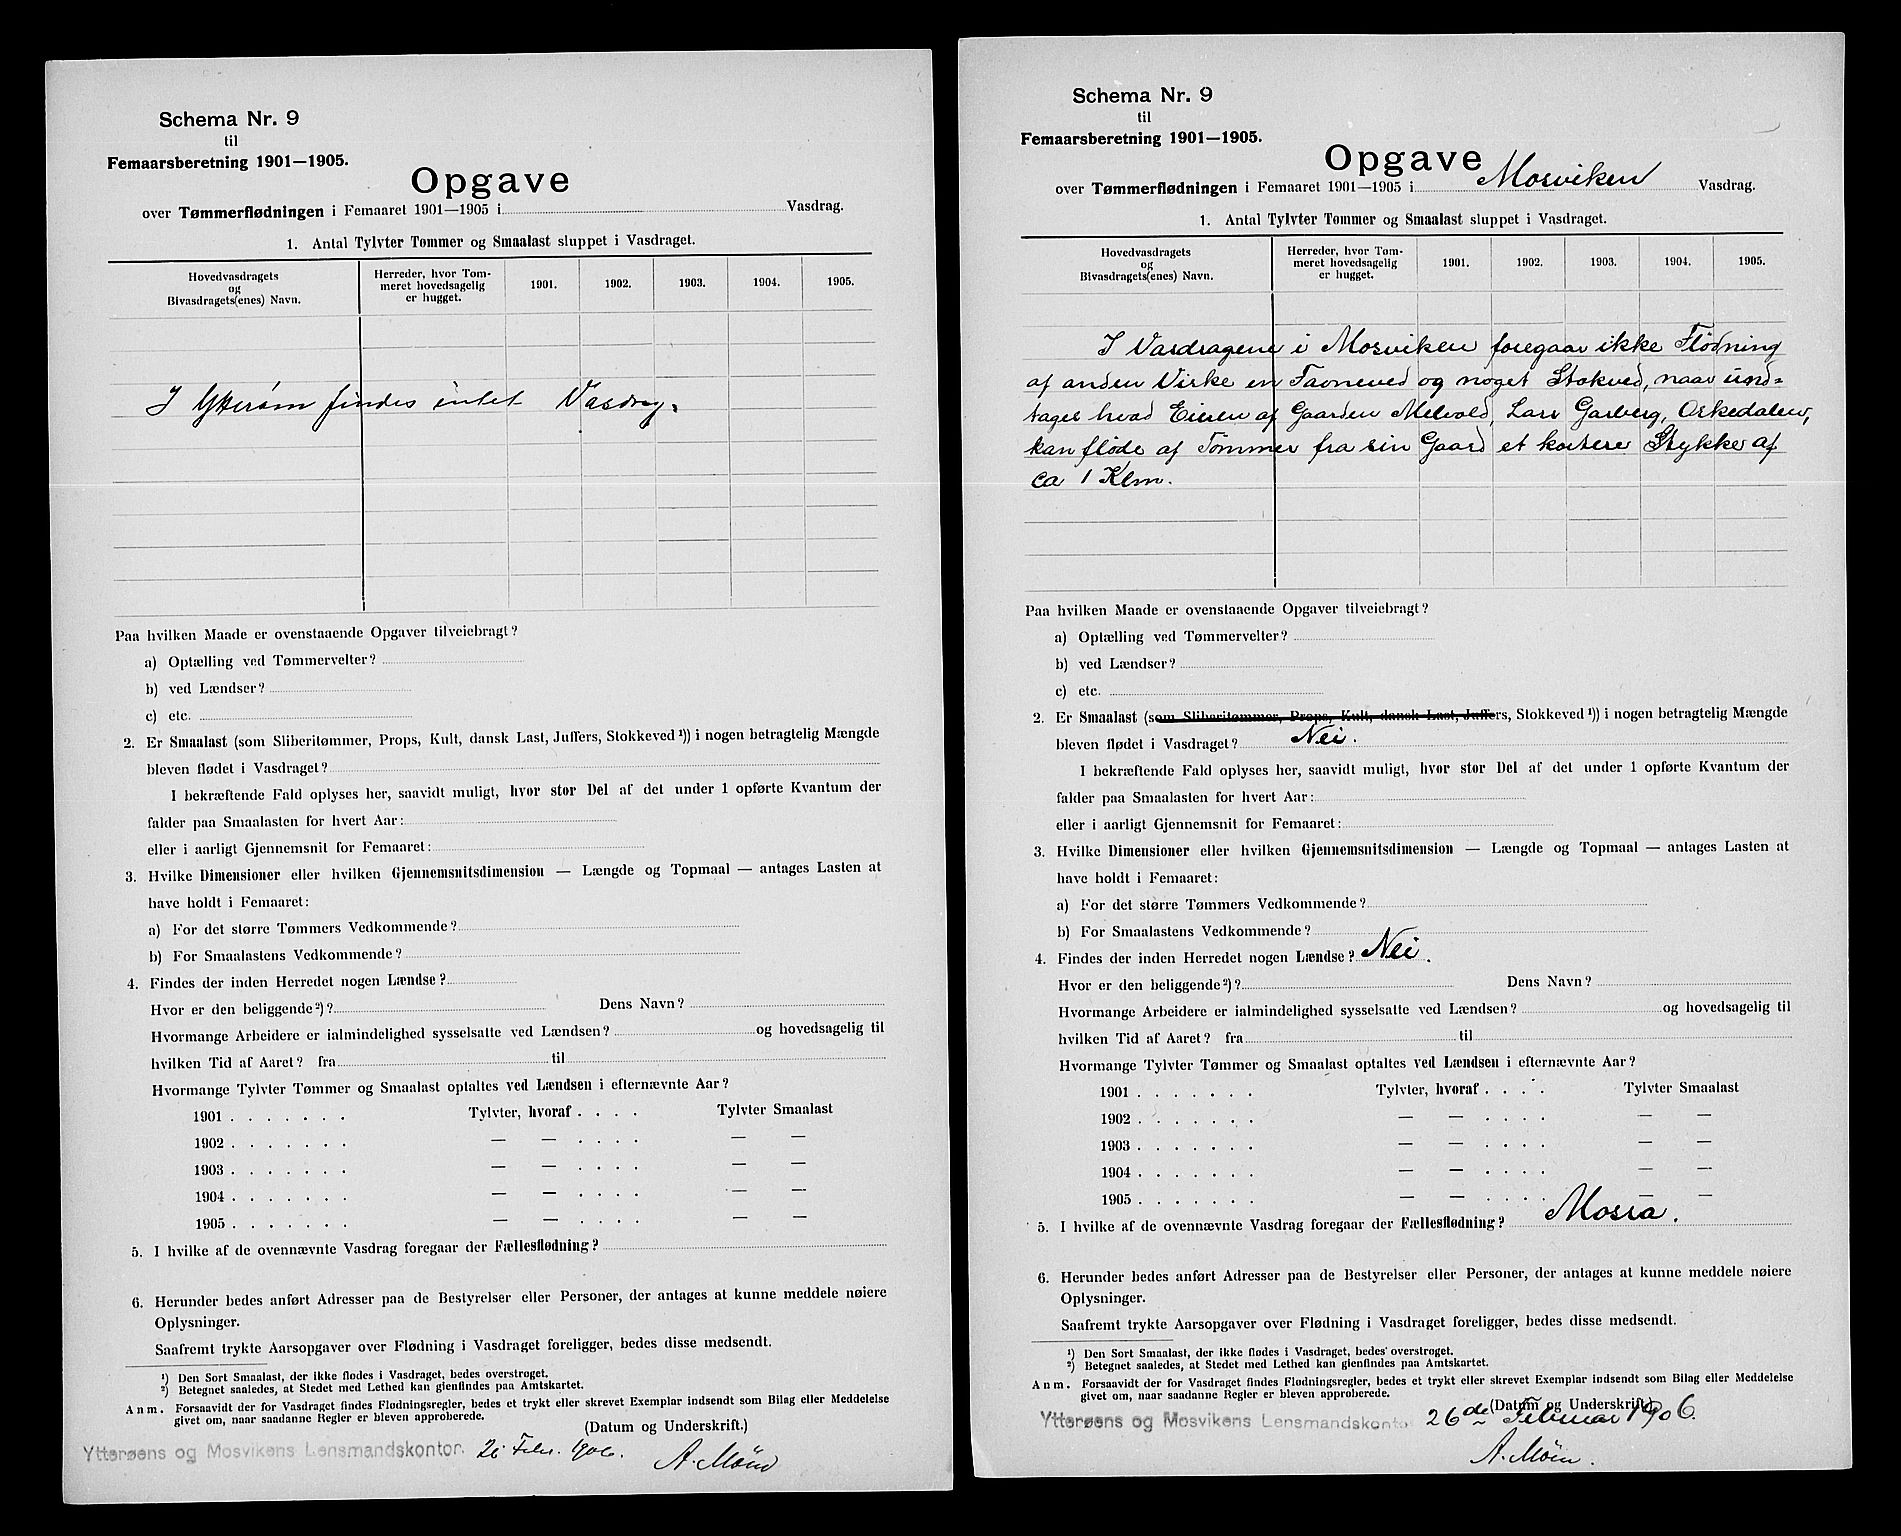 Schema Nr. 9
til
Femaarsberetning 1901—1905.
Opgave
over Tømmerflødningen i Femaaret 1901—1905 i Vasdrag.
1. Antal Tylvter Tømmer og Smaalast sluppet i Vasdraget.
Hovedvasdragets
og
Bivasdragets(enes) Navn.
Herreder, hvor Tøm-
meret hovedsagelig
er hugget.
1901. 1902. 1903. 1904. 1905.
I Ytterøen findes intet Vasdrag.
Paa hvilken Maade er ovenstaaende Opgaver tilveiebragt?
a) Optælling ved Tømmervelter?
b) ved Lændser?
c) etc.
2. Er Smaalast (som Sliberitømmer, Props, Kult, dansk Last, Juffers, Stokkeved ¹)) i nogen betragtelig Mængde
bleven flødet i Vasdraget?
I bekræftende Fald oplyses her, saavidt muligt, hvor stor Del af det under 1 opførte Kvantum der
falder paa Smaalasten for hvert Aar:
eller i aarligt Gjennemsnit for Femaaret:
3. Hvilke Dimensioner eller hvilken Gjennemsnitsdimension — Længde og Topmaal — antages Lasten at
have holdt i Femaaret:
a) For det større Tømmers Vedkommende?
b) For Smaalastens Vedkommende?
4. Findes der inden Herredet nogen Lændse?
Hvor er den beliggende ²)? Dens Navn?
Hvormange Arbeidere er ialmindelighed sysselsatte ved Lændsen? og hovedsagelig til
hvilken Tid af Aaret? fra til
Hvormange Tylvter Tømmer og Smaalast optaltes ved Lændsen i efternævnte Aar?
1901 . . . . . . . Tylvter, hvoraf . . . . Tylvter Smaalast
1902 . . . . . . . — — . . . . — —
1903 . . . . . . . — — . . . . — —
1904 . . . . . . . — — . . . . — —
1905 . . . . . . . — — . . . . — —
5. I hvilke af de ovennævnte Vasdrag foregaar der Fællesflødning?
6. Herunder bedes anført Adresser paa de Bestyrelser eller Personer, der antages at kunne meddele nøiere
Oplysninger.
Saafremt trykte Aarsopgaver over Flødning i Vasdraget foreligger, bedes disse medsendt.
¹) Den Sort Smaalast, der ikke flødes i Vasdraget, bedes overstroget.
²) Betegnet saaledes, at Stedet med Lethed kan gjenfindes paa Amtskartet.
Anm. Forsaavidt der for Vasdraget findes Flødningsregler, bedes et trykt eller skrevet Exemplar indsendt som Bilag eller Meddelelse
givet om, naar saadanne Regler er bleven approberede.
(Datum og Underskrift.)
Ytterøens og Mosvikens Lensmandskontor. 26 Febr. 1906.
A. Møin
Schema Nr. 9
til
Femaarsberetning 1901—1905.
Opgave
over Tømmerflødningen i Femaaret 1901—1905 i Mosviken Vasdrag.
1. Antal Tylvter Tømmer og Smaalast sluppet i Vasdraget.
Hovedvasdragets
og
Bivasdragets(enes) Navn.
Herreder, hvor Tøm-
meret hovedsagelig
er hugget.
1901. 1902. 1903. 1904. 1905.
I Vasdragene i Mosviken foregaar ikke Flødning
af anden Virke en Favneved og noget Stokved, naar und-
tages hvad Eieren af Gaarden Melvold, Lars Garberg, Orkedalen,
kan fløde af Tømmer fra sin Gaard et kortere Stykke af
ca 1 Klm.
Paa hvilken Maade er ovenstaaende Opgaver tilveiebragt?
a) Optælling ved Tømmervelter?
b) ved Lændser?
c) etc.
2. Er Smaalast (som Sliberitømmer, Props, Kult, dansk Last, Juffers, Stokkeved ¹)) i nogen betragtelig Mængde
bleven flødet i Vasdraget? Nei.
I bekræftende Fald oplyses her, saavidt muligt, hvor stor Del af det under 1 opførte Kvantum der
falder paa Smaalasten for hvert Aar:
eller i aarligt Gjennemsnit for Femaaret:
3. Hvilke Dimensioner eller hvilken Gjennemsnitsdimension — Længde og Topmaal — antages Lasten at
have holdt i Femaaret:
a) For det større Tømmers Vedkommende?
b) For Smaalastens Vedkommende?
4. Findes der inden Herredet nogen Lændse? Nei.
Hvor er den beliggende ²)? Dens Navn?
Hvormange Arbeidere er ialmindelighed sysselsatte ved Lændsen? og hovedsagelig til
hvilken Tid af Aaret? fra til
Hvormange Tylvter Tømmer og Smaalast optaltes ved Lændsen i efternævnte Aar?
1901 . . . . . . . Tylvter, hvoraf . . . . Tylvter Smaalast
1902 . . . . . . . — — . . . . — —
1903 . . . . . . . — — . . . . — —
1904 . . . . . . . — — . . . . — —
1905 . . . . . . . — — . . . . — —
5. I hvilke af de ovennævnte Vasdrag foregaar der Fællesflødning? Mossa.
6. Herunder bedes anført Adresser paa de Bestyrelser eller Personer, der antages at kunne meddele nøiere
Oplysninger.
Saafremt trykte Aarsopgaver over Flødning i Vasdraget foreligger, bedes disse medsendt.
¹) Den Sort Smaalast, der ikke flødes i Vasdraget, bedes overstroget.
²) Betegnet saaledes, at Stedet med Lethed kan gienfindes paa Amtskartet.
Anm. Forsaavidt der for Vasdraget findes Flødningsregler, bedes et trykt eller skrevet Exemplar indsendt som Bilag eller Meddelelse
givet om, naar saadanne Regler er bleven approberede.
(Datum og Underskrift.)
Ytterøens og Mosvikens Lensmandskontor 26de Februar 1906.
A. Møin.